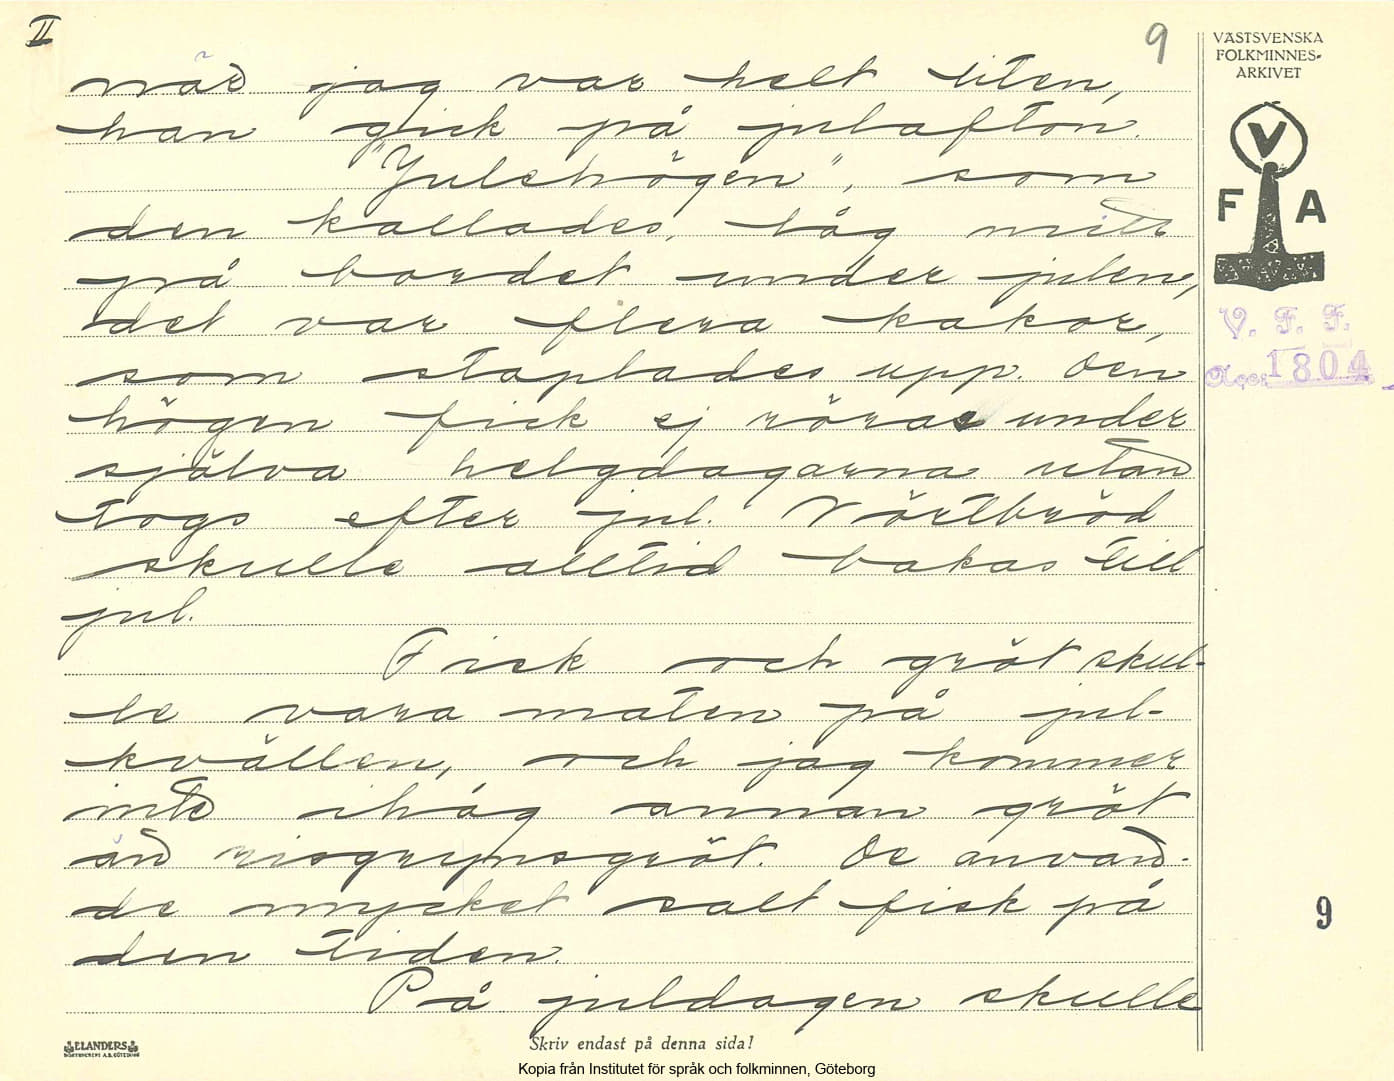 II
9
VÄSTSVENSKA
FOLKMINNES-
ARKIVET
när jag var helt liten,
han gick på julafton.
"Julehögen", som
den kallades, låg mitt
på bordet under julen,
det var flera kakor,
som staplades upp. Den
högen fick ej röras under
själva helgdagarna utan
togs efter jul. Vörtbröd
skulle alltid bakas till
jul.
Fisk och gröt skul-
le vara maten på jul-
kvällen, och jag kommer
inte ihåg annan gröt
än risgrynsgröt. De använ-
de mycket salt fisk på
den tiden.
På juldagen skulle
V
F A
V. F. F.
Acc. 1804
9
ELANDERS
BOKTRYCKERI A.B. GÖTEBORG
Skriv endast på denna sida!
Kopia från Institutet för språk och folkminnen, Göteborg